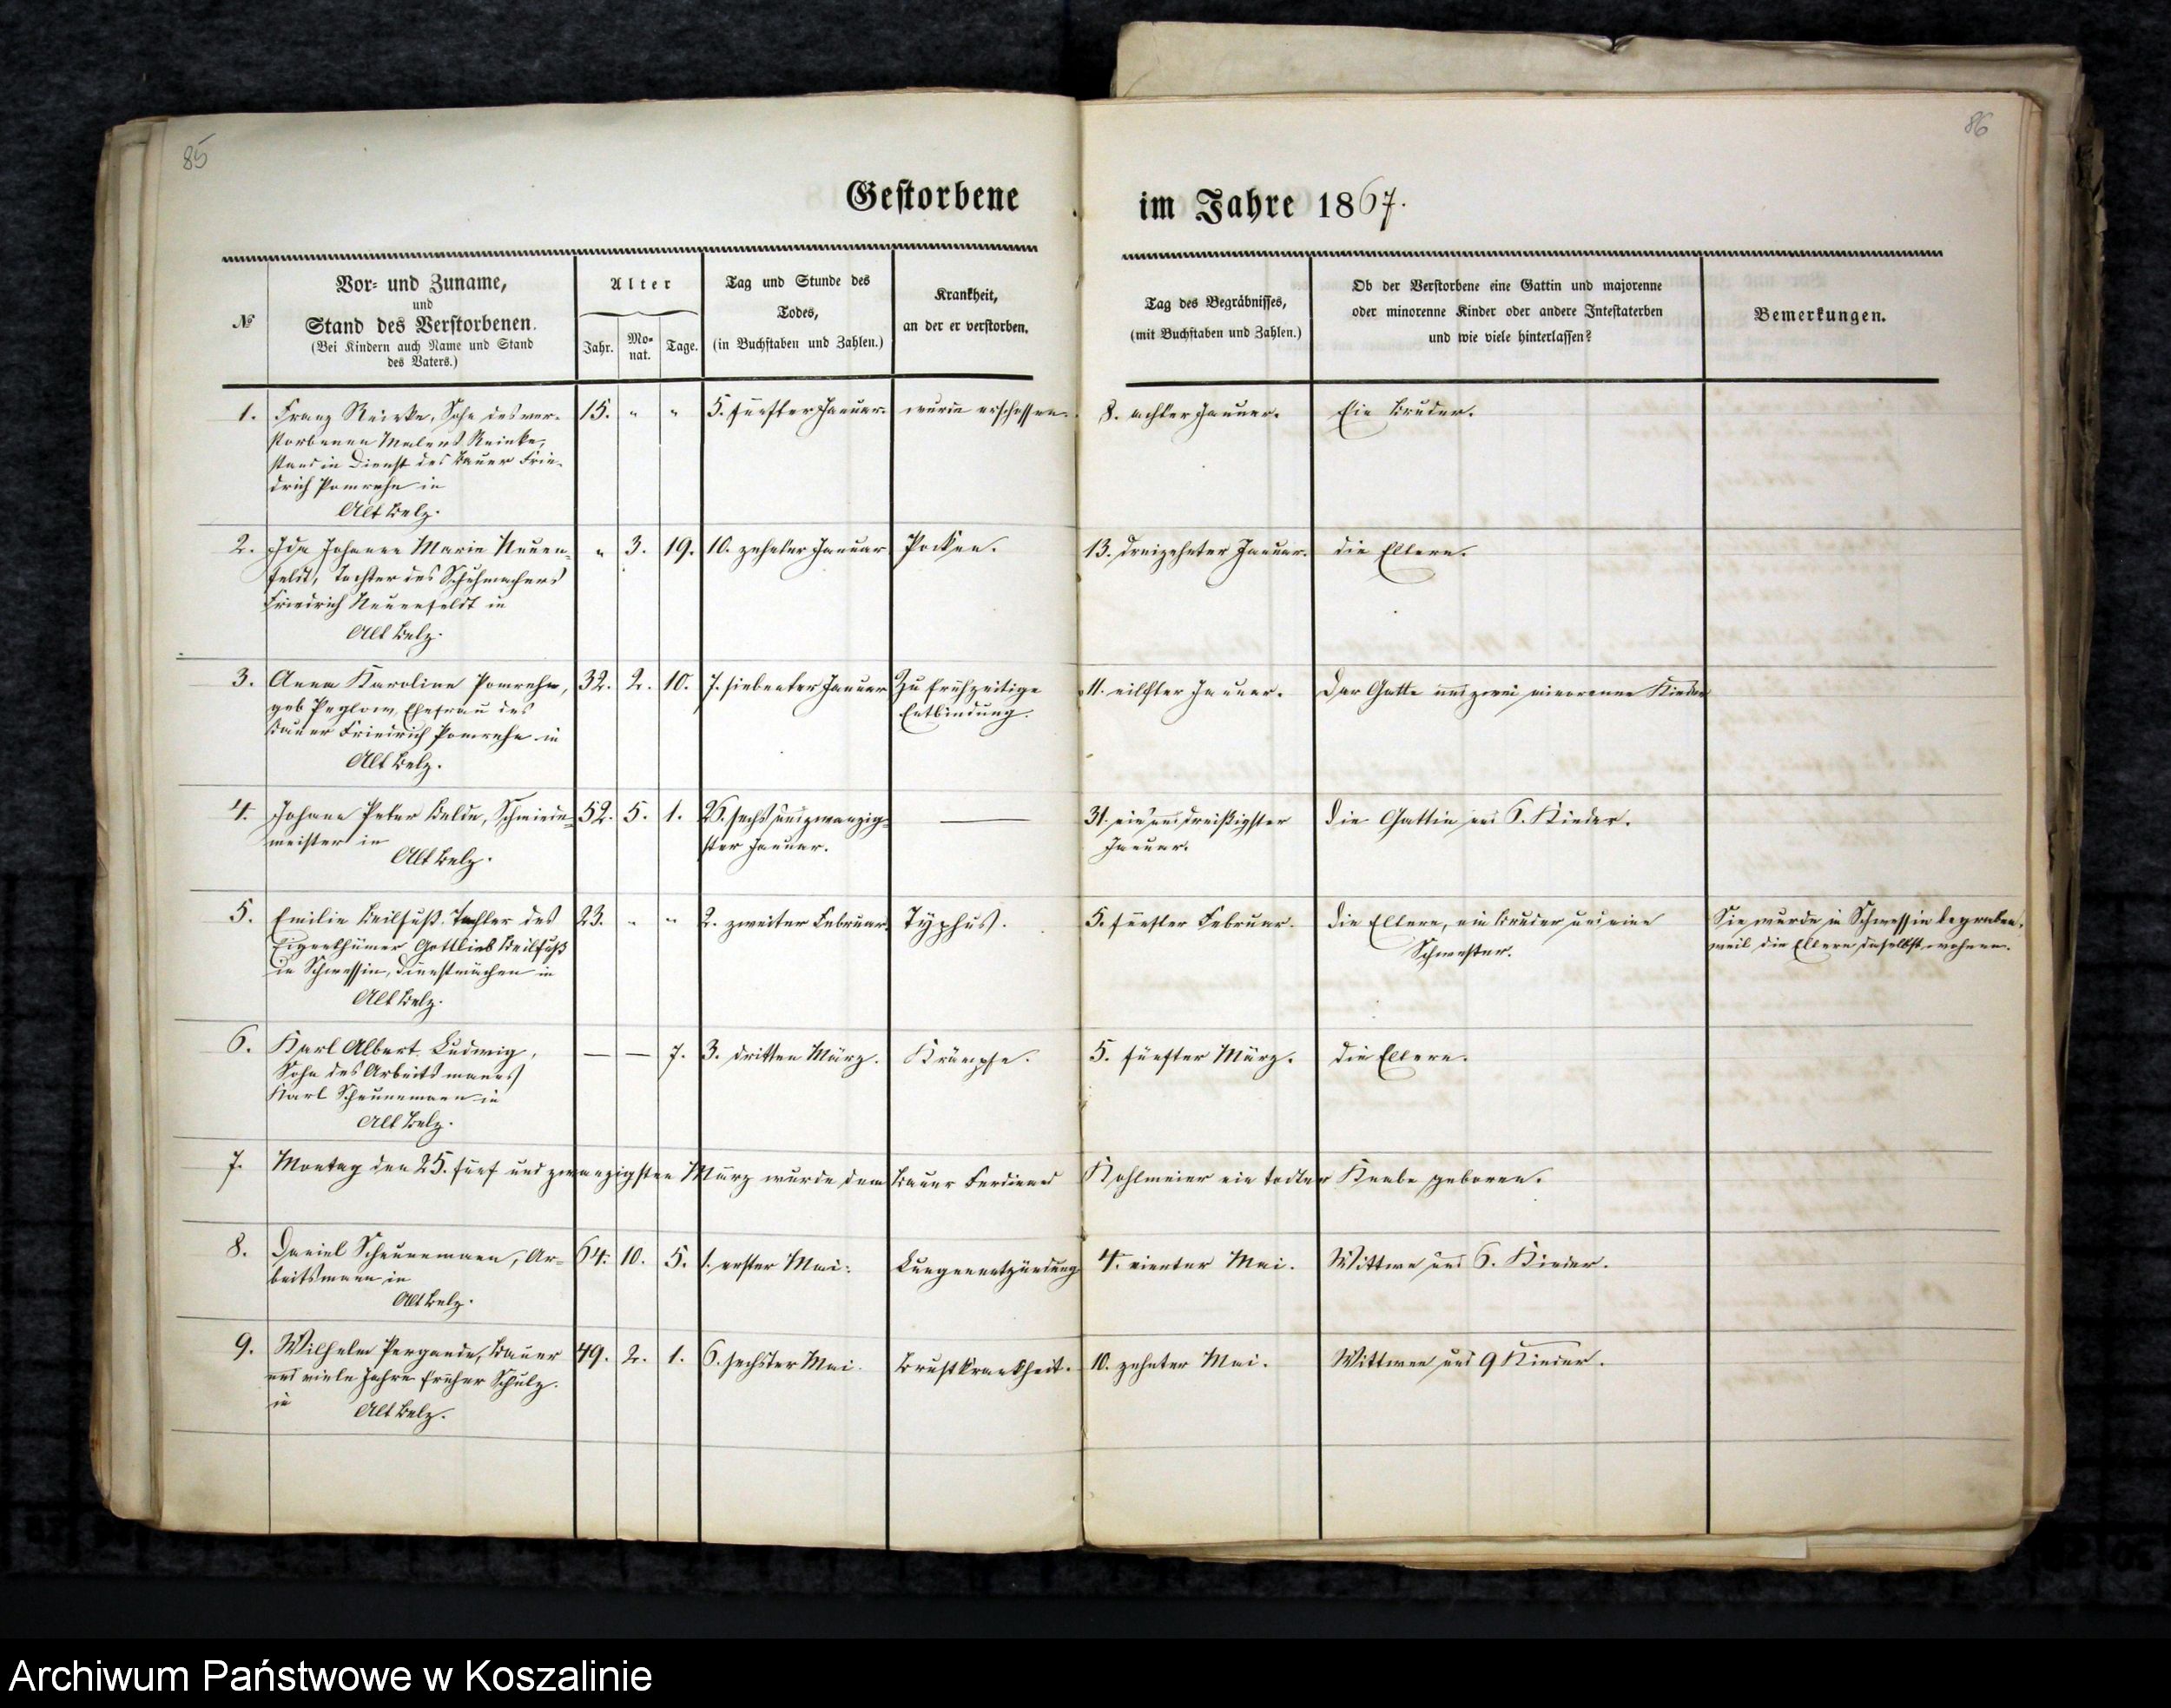 85
86
Gestorbene
im Jahre 1867.
№
Vor- und Zuname,
und
Stand des Verstorbenen.
(Bei Kindern auch Name und Stand
des Vaters.)
Alter
Jahr.
Mo-
nat.
Tage.
Tag und Stunde des
Todes,
(in Buchstaben und Zahlen.)
Krankheit,
an der er verstorben.
Tag des Begräbnisses,
(mit Buchstaben und Zahlen.)
Ob der Verstorbene eine Gattin und majorenne
oder minorenne Kinder oder andere Intestaterben
und wie viele hinterlassen?
Bemerkungen.
1. Franz Reinke, Sohn des ver- 15. " " 5. fünfter Januar. wurde erschossen. 8. achter Januar. Ein Bruder.
storbenen Malers Reinke,
stand in Dienst des Bauer Frie-
drich Pomrehn in
Alt Belz.
2. Ida Johanne Marie Neuen- " 3. 19. 10. zehnter Januar Pocken. 13. dreizehnter Januar. die Eltern.
feldt, Tochter des Schuhmachers
Friedrich Neuenfeldt in
Alt Belz.
3. Anna Karoline Pomrehn, 32. 2. 10. 7. siebenter Januar Zu frühzeitige 11. eilfter Januar. Der Gatte und zwei minorenne Kinder
geb Peglow, Ehefrau des Entbindung.
Bauer Friedrich Pomrehn in
Alt Belz.
4. Johann Peter Belde, Schmiede- 52. 5. 1. 26. sechsundzwanzig- — 31. einunddreißigster Die Gattin und 6. Kinder.
meister in ster Januar. Januar.
Alt Belz.
5. Emilie Beilfuß, Tochter des 23. " " 2. zweiter Februar Typhus. 5. fünfter Februar. die Eltern, ein Bruder und eine Sie wurde in Schwessin begraben,
Eigenthümer Gottlieb Beilfuß Schwester. weil die Eltern daselbst wohnen.
in Schwessin, Dienstmädchen in
Alt Belz.
6. Karl Albert Ludwig, — — 7. 3. dritten März. Krämpfe. 5. fünfter März. die Eltern.
Sohn des Arbeitsmanns
Karl Scheunemann in
Alt Belz.
7. Montag den 25. fünf und zwanzigsten März wurde dem Bauer Ferdinand Kohlmeier ein todter Knabe geboren.
8. Daniel Scheunemann, Ar- 64. 10. 5. 1. erster Mai. Lungenentzündung 4. vierter Mai. Wittwe und 6. Kinder.
beitsmann in
Alt Belz.
9. Wilhelm Pergande, Bauer 49. 2. 1. 6. sechster Mai. Brustkrankheit. 10. zehnter Mai. Wittwe und 9 Kinder.
und viele Jahre früher Schulz.
in Alt Belz.
Archiwum Państwowe w Koszalinie